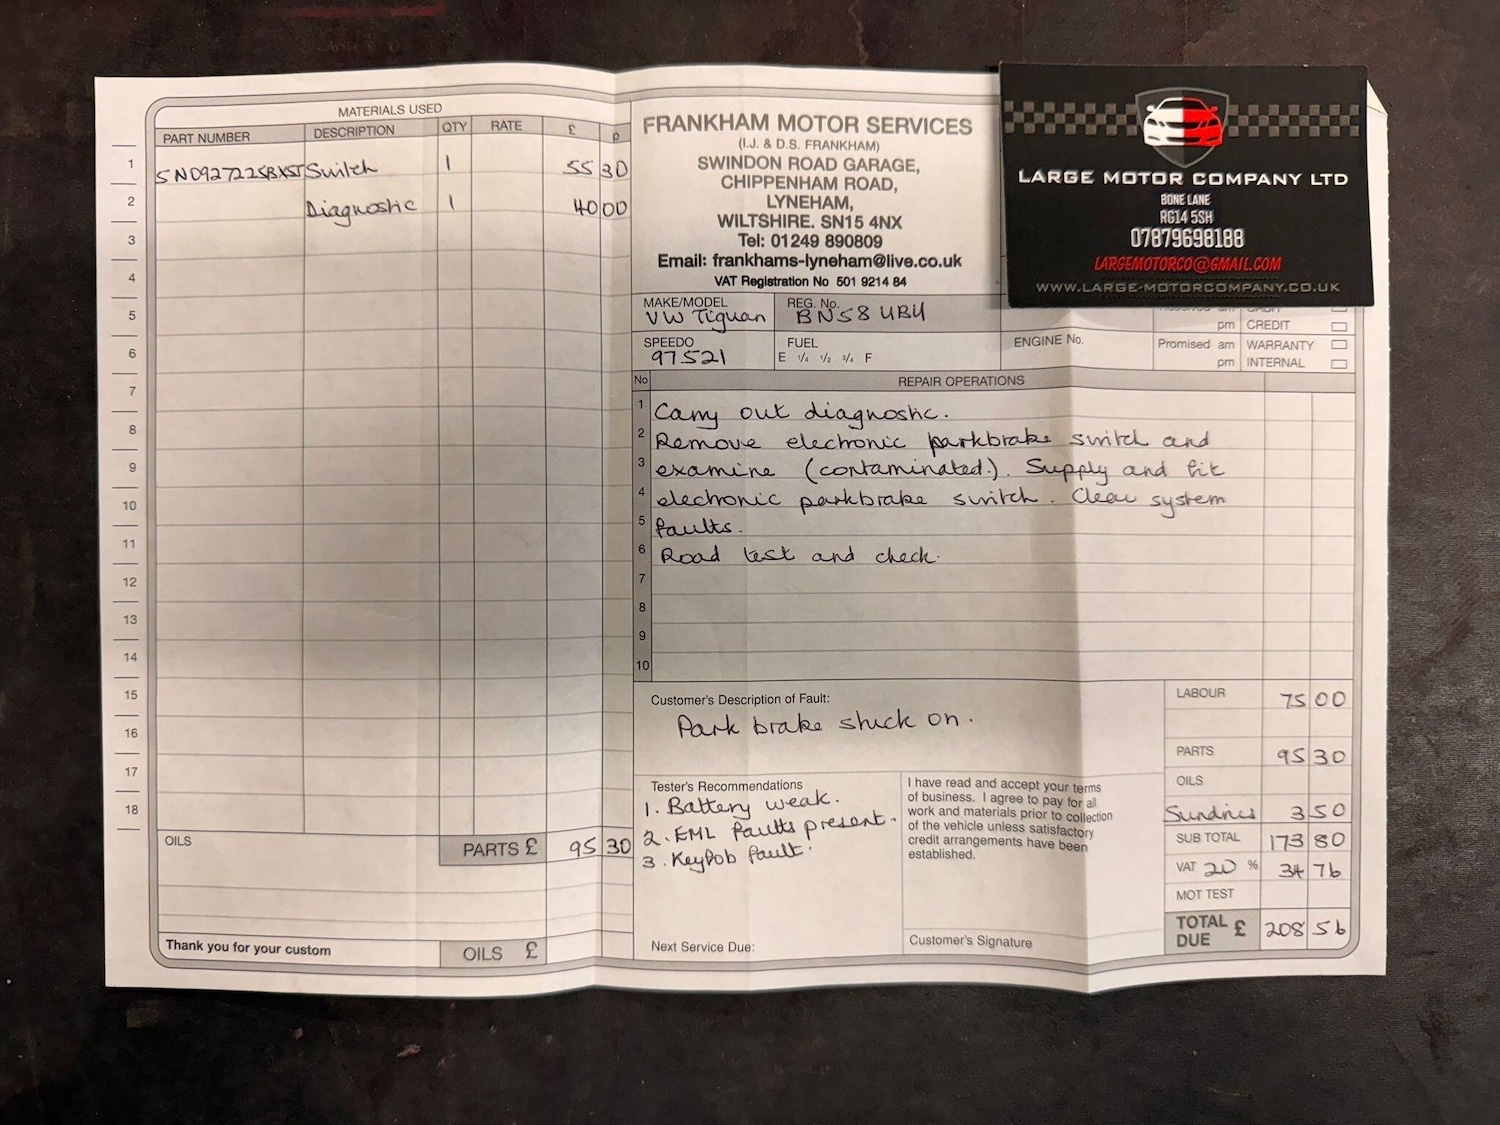 MATERIALS USED
PART NUMBER DESCRIPTION QTY RATE £ p
1 5N0927225BXSJ Switch 1 55 30
2 Diagnostic 1 40 00
3
4
5
6
7
8
9
10
11
12
13
14
15
16
17
18
OILS PARTS £ 95 30
Thank you for your custom OILS £
FRANKHAM MOTOR SERVICES
(I.J. & D.S. FRANKHAM)
SWINDON ROAD GARAGE,
CHIPPENHAM ROAD,
LYNEHAM,
WILTSHIRE. SN15 4NX
Tel: 01249 890809
Email: frankhams-lyneham@live.co.uk
VAT Registration No 501 9214 84
LARGE MOTOR COMPANY LTD
BONE LANE
RG14 5SH
07879698188
LARGEMOTORCO@GMAIL.COM
WWW.LARGE-MOTORCOMPANY.CO.UK
MAKE/MODEL REG. No.
VW Tiguan BN58 UBU
SPEEDO FUEL ENGINE No.
97521 E 1/4 1/2 3/4 F
pm CREDIT
Promised am WARRANTY
pm INTERNAL
No REPAIR OPERATIONS
1 Carry out diagnostic.
2 Remove electronic parkbrake switch and
3 examine (contaminated.). Supply and fit
4 electronic parkbrake switch. Clear system
5 faults.
6 Road test and check.
7
8
9
10
Customer's Description of Fault:
Park brake stuck on.
Tester's Recommendations
1. Battery weak.
2. EML faults present.
3. Keyfob fault.
Next Service Due:
I have read and accept your terms
of business. I agree to pay for all
work and materials prior to collection
of the vehicle unless satisfactory
credit arrangements have been
established.
Customer's Signature
LABOUR 75 00
PARTS 95 30
OILS
Sundries 3 50
SUB TOTAL 173 80
VAT 20 % 34 76
MOT TEST
TOTAL DUE £ 208 56